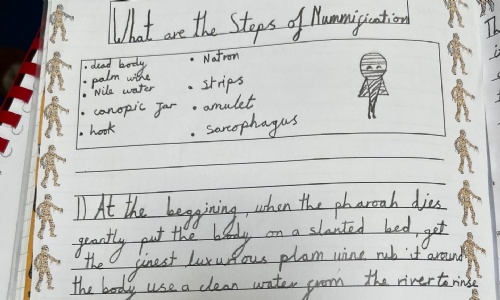 What are the Steps of Mummification
• dead body
• palm wine
• Nile water
• canopic jar
• hook
• Natron
• strips
• amulet
• Sarcophagus
1) At the beggining, when the pharoah dies
geantly put the body on a slanted bed, get
the finest luxurious plam wine rub it around
the body use a clean water from the river to rinse